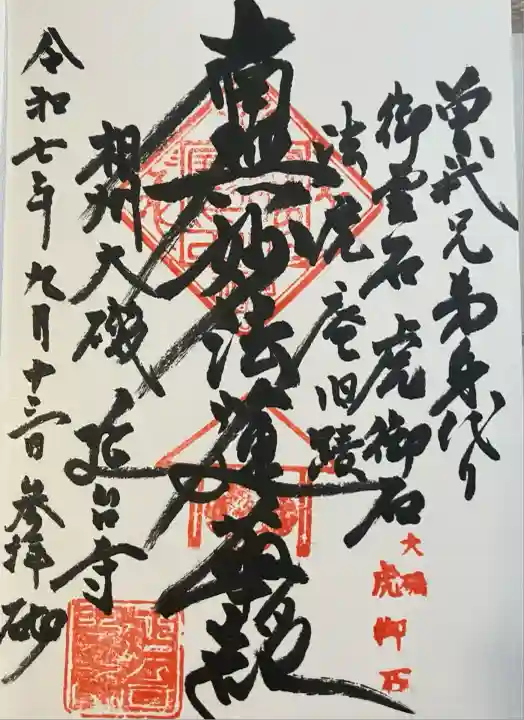 曽我兄弟身代り
御霊石虎御石
大磯
虎御石
法虎庵旧蹟
南無妙法蓮華経
相州大磯 延台寺
令和七年九月十三日参拝